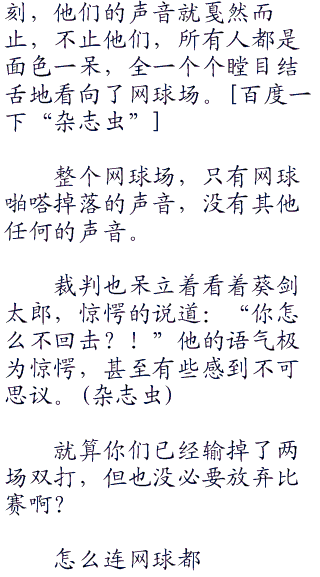 刻，他们的声音就戛然而
止，不止他们，所有人都是
面色一呆，全一个个瞠目结
舌地看向了网球场。[百度一
下“杂志虫”]
整个网球场，只有网球
啪嗒掉落的声音，没有其他
任何的声音。
裁判也呆立着看着葵剑
太郎，惊愕的说道：“你怎
么不回击？！”他的语气极
为惊愕，甚至有些感到不可
思议。(杂志虫)
就算你们已经输掉了两
场双打，但也没必要放弃比
赛啊？
怎么连网球都